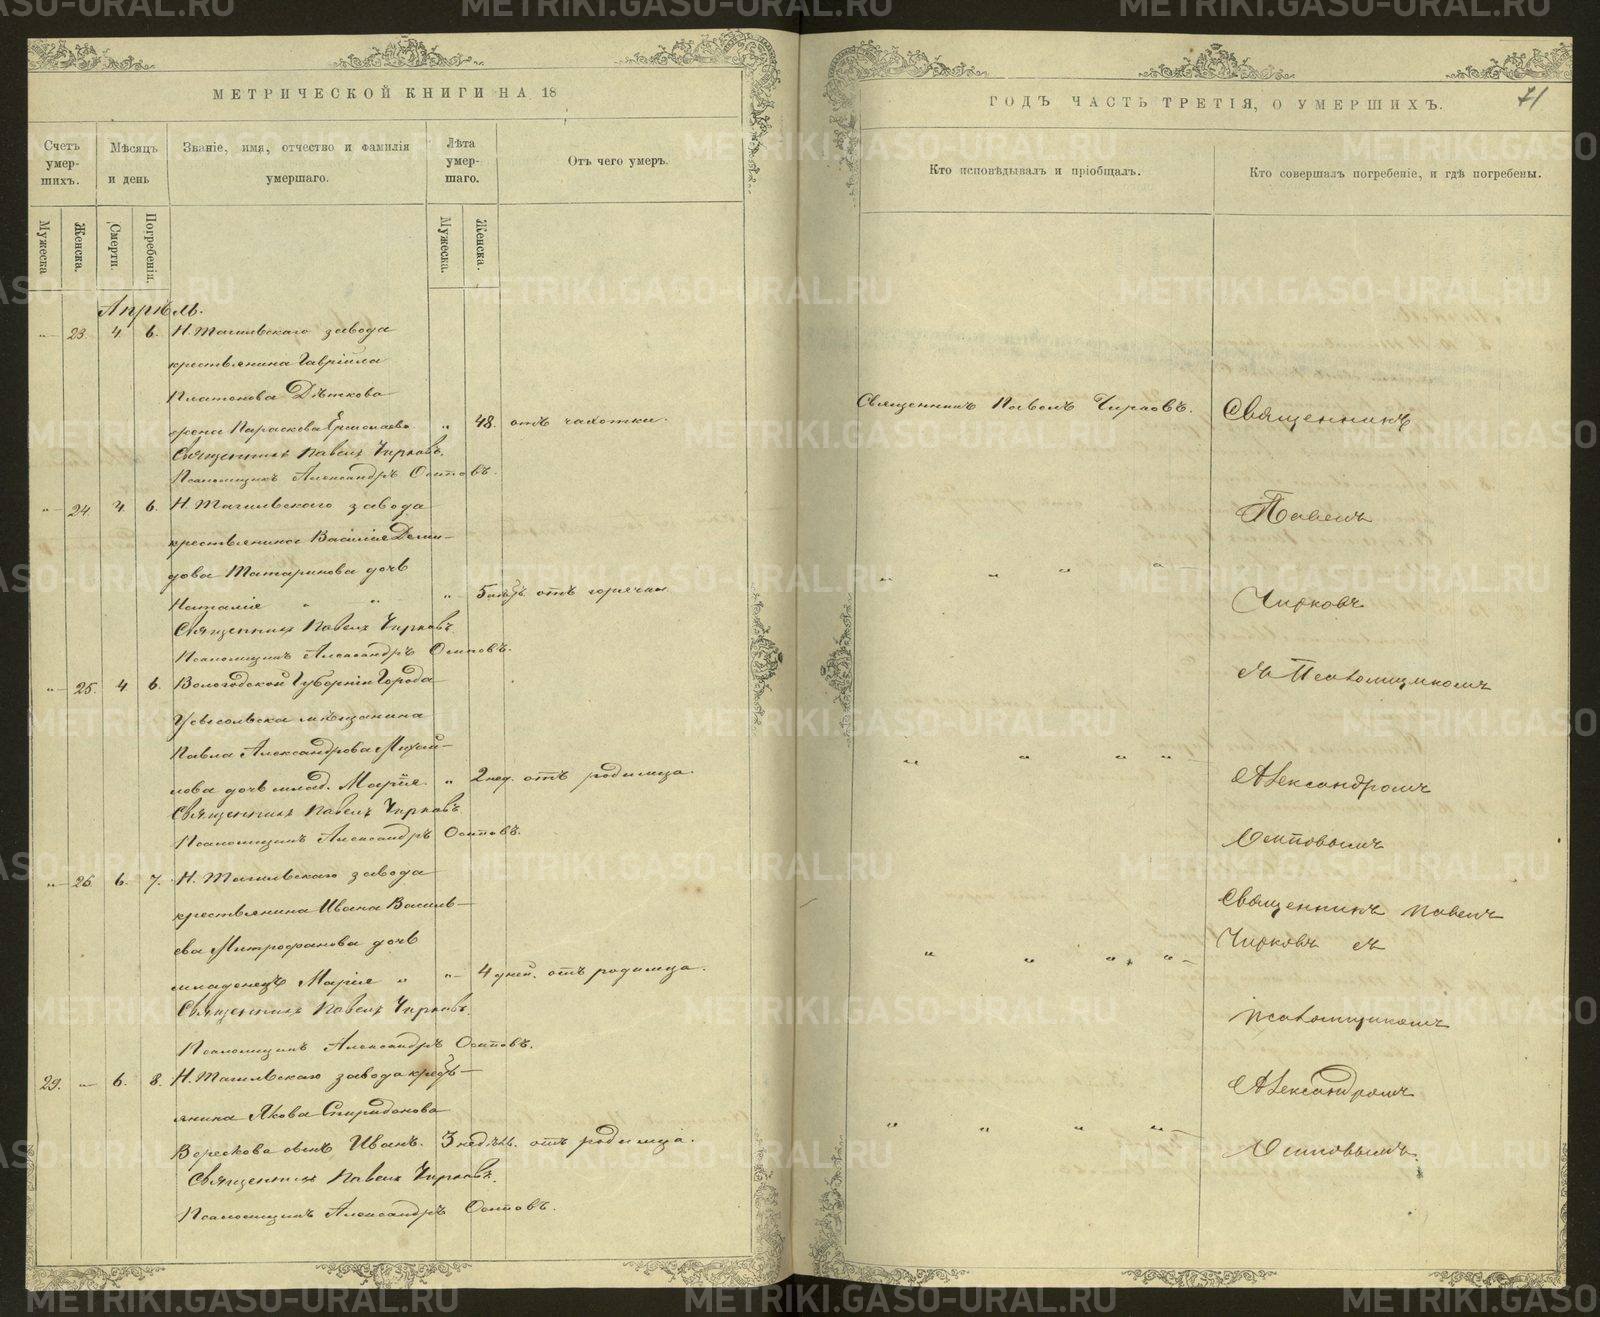 МЕТРИЧЕСКОЙ КНИГИ НА 18
Счетъ умер-шихъ.
Мѣсяцъ и день
Званіе, имя, отчество и фамилія умершаго.
Лѣта умер-шаго.
Отъ чего умеръ.
Мужеска
Женска.
Смерти.
Погребенія.
Мужеска.
Женска.
Апрѣль.
„ 23. 4. 6. Н. Тагильскаго завода
крестьянина Гавріила
Платонова Дѣткова
жена Параскева „ 48. отъ чахотки.
Священникъ Павелъ Чирковъ.
Псаломщикъ Александръ Осиповъ.
„ 24. 4. 6. Н. Тагильскаго завода
крестьянина Василія Деми-
дова Татаринова дочь
Наталія „ „ „ 5 отъ горячки
Священникъ Павелъ Чирковъ
Псаломщикъ Александръ Осиповъ.
„ 25. 4 6. Вологодской Губерніи Города
Устьсольска мѣщанина
Павла Александрова Михай-
лова дочь млад. Марія „ 2 нед. отъ родимца.
Священникъ Павелъ Чирковъ
Псаломщикъ Александръ Осиповъ.
„ 26. 6. 7. Н. Тагильскаго завода
крестьянина Ивана Василь-
ева Митрофанова дочь
младенецъ Марія „ „ 4 дней. отъ родимца.
Священникъ Павелъ Чирковъ.
Псаломщикъ Александръ Осиповъ.
29. „ 6. 8. Н. Тагильскаго завода кресть-
янина Якова Спиридонова
сынъ Иванъ. 3 недѣль. отъ родимца.
Священникъ Павелъ Чирковъ.
Псаломщикъ Александръ Осиповъ.
ГОДЪ ЧАСТЬ ТРЕТІЯ, О УМЕРШИХЪ.
71
Кто исповѣдывалъ и пріобщалъ.
Кто совершалъ погребеніе, и гдѣ погребены.
Священникъ Павелъ Чирковъ.
„ „ „ „
„ „ „ „
„ „ „ „
„ „ „ „
Священникъ
Павелъ
Чирковъ
съ Псаломщикомъ
Александромъ
Осиповымъ
Священникъ Павелъ
Чирковъ съ
псаломщикомъ
Александромъ
Осиповымъ.
METRIKI.GASO-URAL.RU